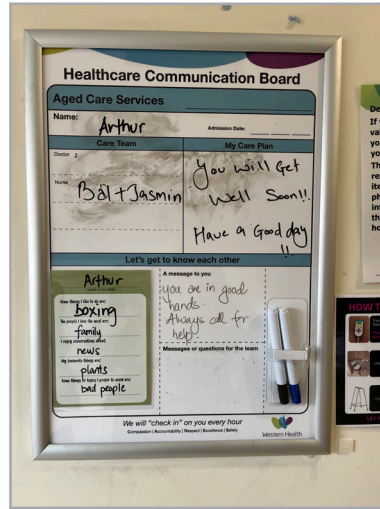 Healthcare Communication Board
Aged Care Services
Name: Arthur
Admission Date:
Care Team
My Care Plan
Doctor
Nurse
Bal + Jasmin
You will Get
Well Soon!!
Have a Good day
!!
Let's get to know each other
Arthur
Some things I like to do are:
boxing
The people I love the most are:
family
I enjoy conversations about:
news
My favourite things are:
plants
Some things or topics I prefer to avoid are:
bad people
A message to you
you are in good
hands.
Always call for
help
Messages or questions for the team
We will "check in" on you every hour
Compassion | Accountability | Respect | Excellence | Safety
Western Health
HOW T